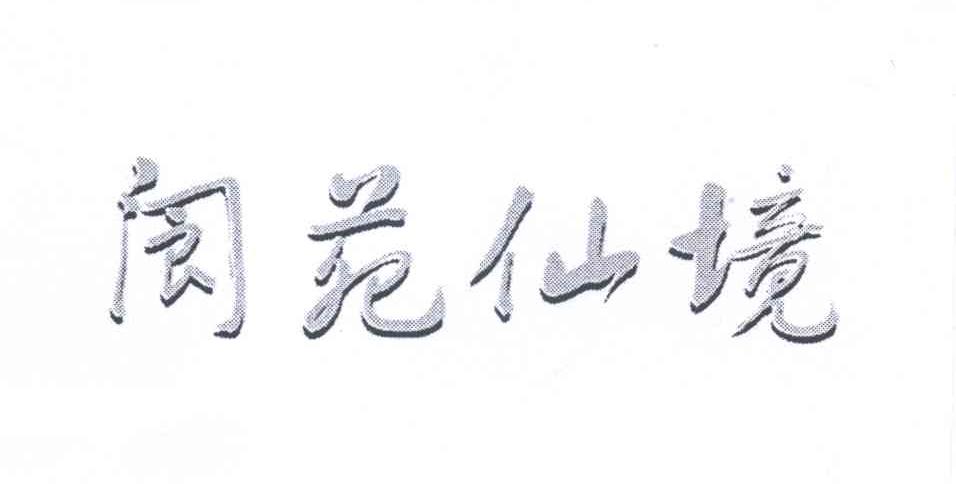 阆苑仙境